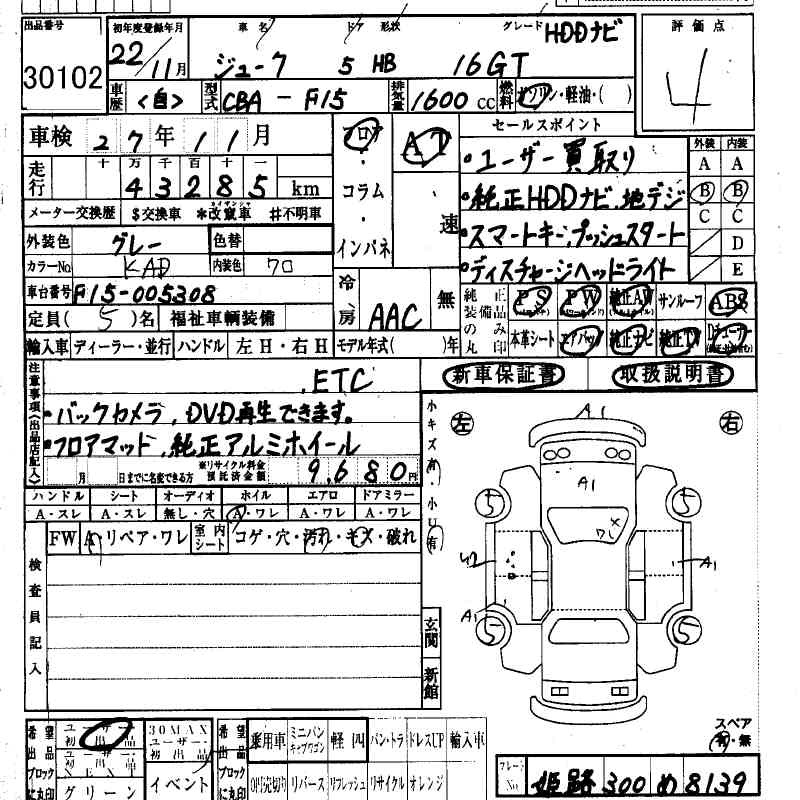 出品番号 初年度登録年月 車名 ドア 形状 グレード HDDナビ 評価点
30102 22/11月 ジューク 5 HB 16GT 4
車歴 <自> 型式 CBA-F15 排気量 1600cc 燃料 ガソリン・軽油・( )
車検 27年11月 フロア・コラム・インパネ AT 速 セールスポイント 外装 内装
走行 十 万 千 百 十 一
43285 km
・ユーザー買取り A A
・純正HDDナビ、地デジ B B
メーター交換歴 $交換車 *改竄車 #不明車 C C
・スマートキー、プッシュスタート D
外装色 グレー 色替
・ディスチャージヘッドライト E
カラーNo KAD 内装色 70
車台番号 F15-005308 冷房 AAC 無
純正装備品のみ丸印 PS PW 純正AW サンルーフ ABS
定員(5)名 福祉車輌装備
本革シート エアバッグ 純正ナビ 純正TV Dチューナー
輸入車 ディーラー・並行 ハンドル 左H・右H モデル年式( )年
注意事項(出品店記入) ,ETC
新車保証書 取扱説明書
・バックカメラ、DVD再生できます。
・フロアマット、純正アルミホイール
月 日までに名変できる方 ※リサイクル料金預託済金額 9,680円
ハンドル シート オーディオ ホイル エアロ ドアミラー
A・スレ A・スレ 無し・穴 A・ワレ A・ワレ A・ワレ
FW A リペア・ワレ 室内シート コゲ・穴・汚れ・キズ・破れ
検査員記入
小キズ有 小U有
左 右
A1
A1
5 5
ワレ
U2 A1
A1
5 5
玄関
新館
スペア
有・無
希望出品ブロックに丸印 ユーザー初出品 30MAXユーザー初出品
グリーン イベント
希望出品ブロックに丸印 乗用車 ミニバン キャブワゴン 軽四 バン・トラ ドレスUP 輸入車
リバース リフレッシュ リサイクル オレンジ
プレートNo 姫路 300 め 8139